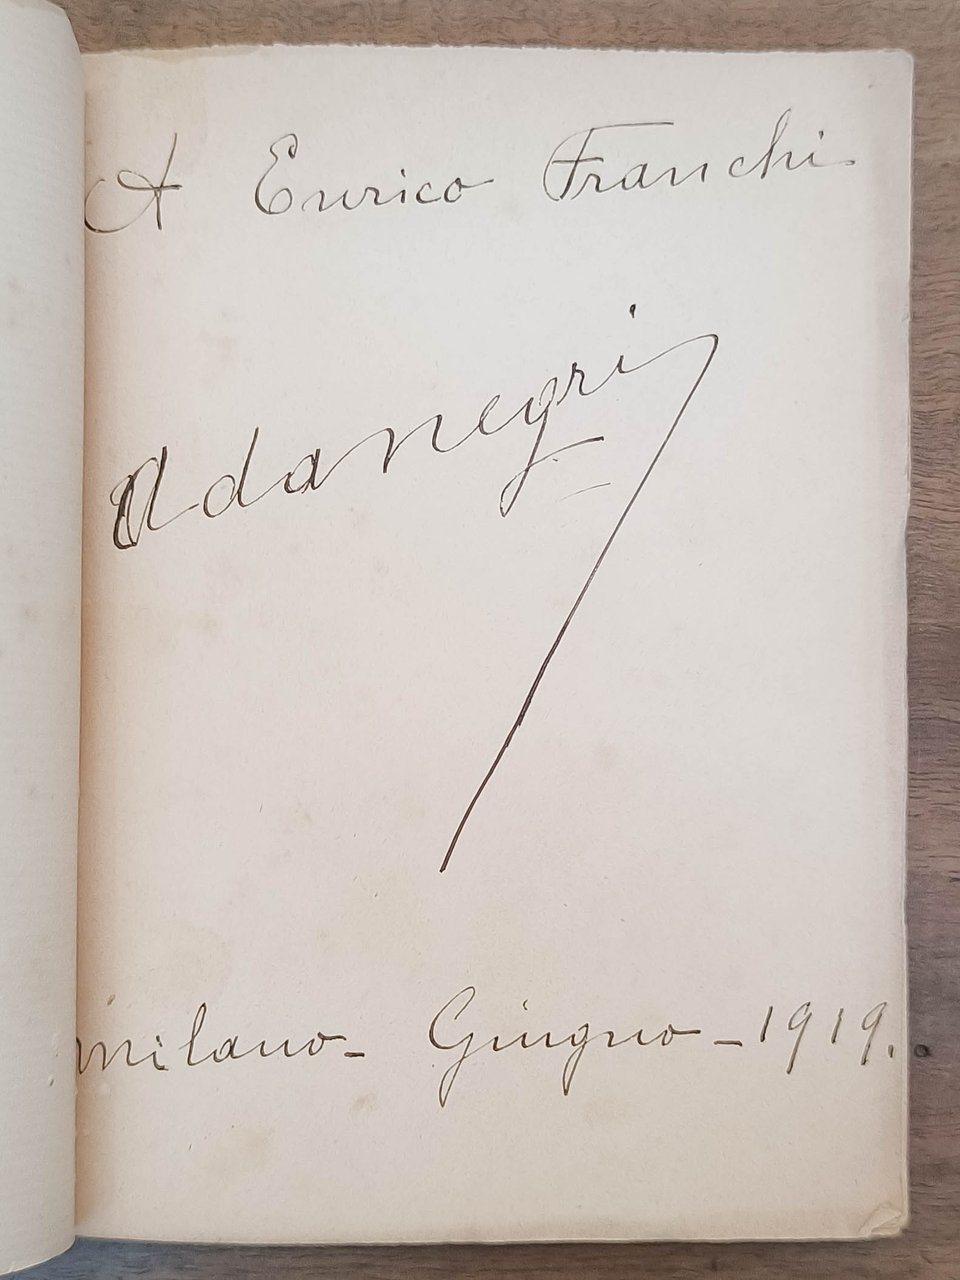 A Enrico Franchi
Ada negri
milano - Giugno - 1919.